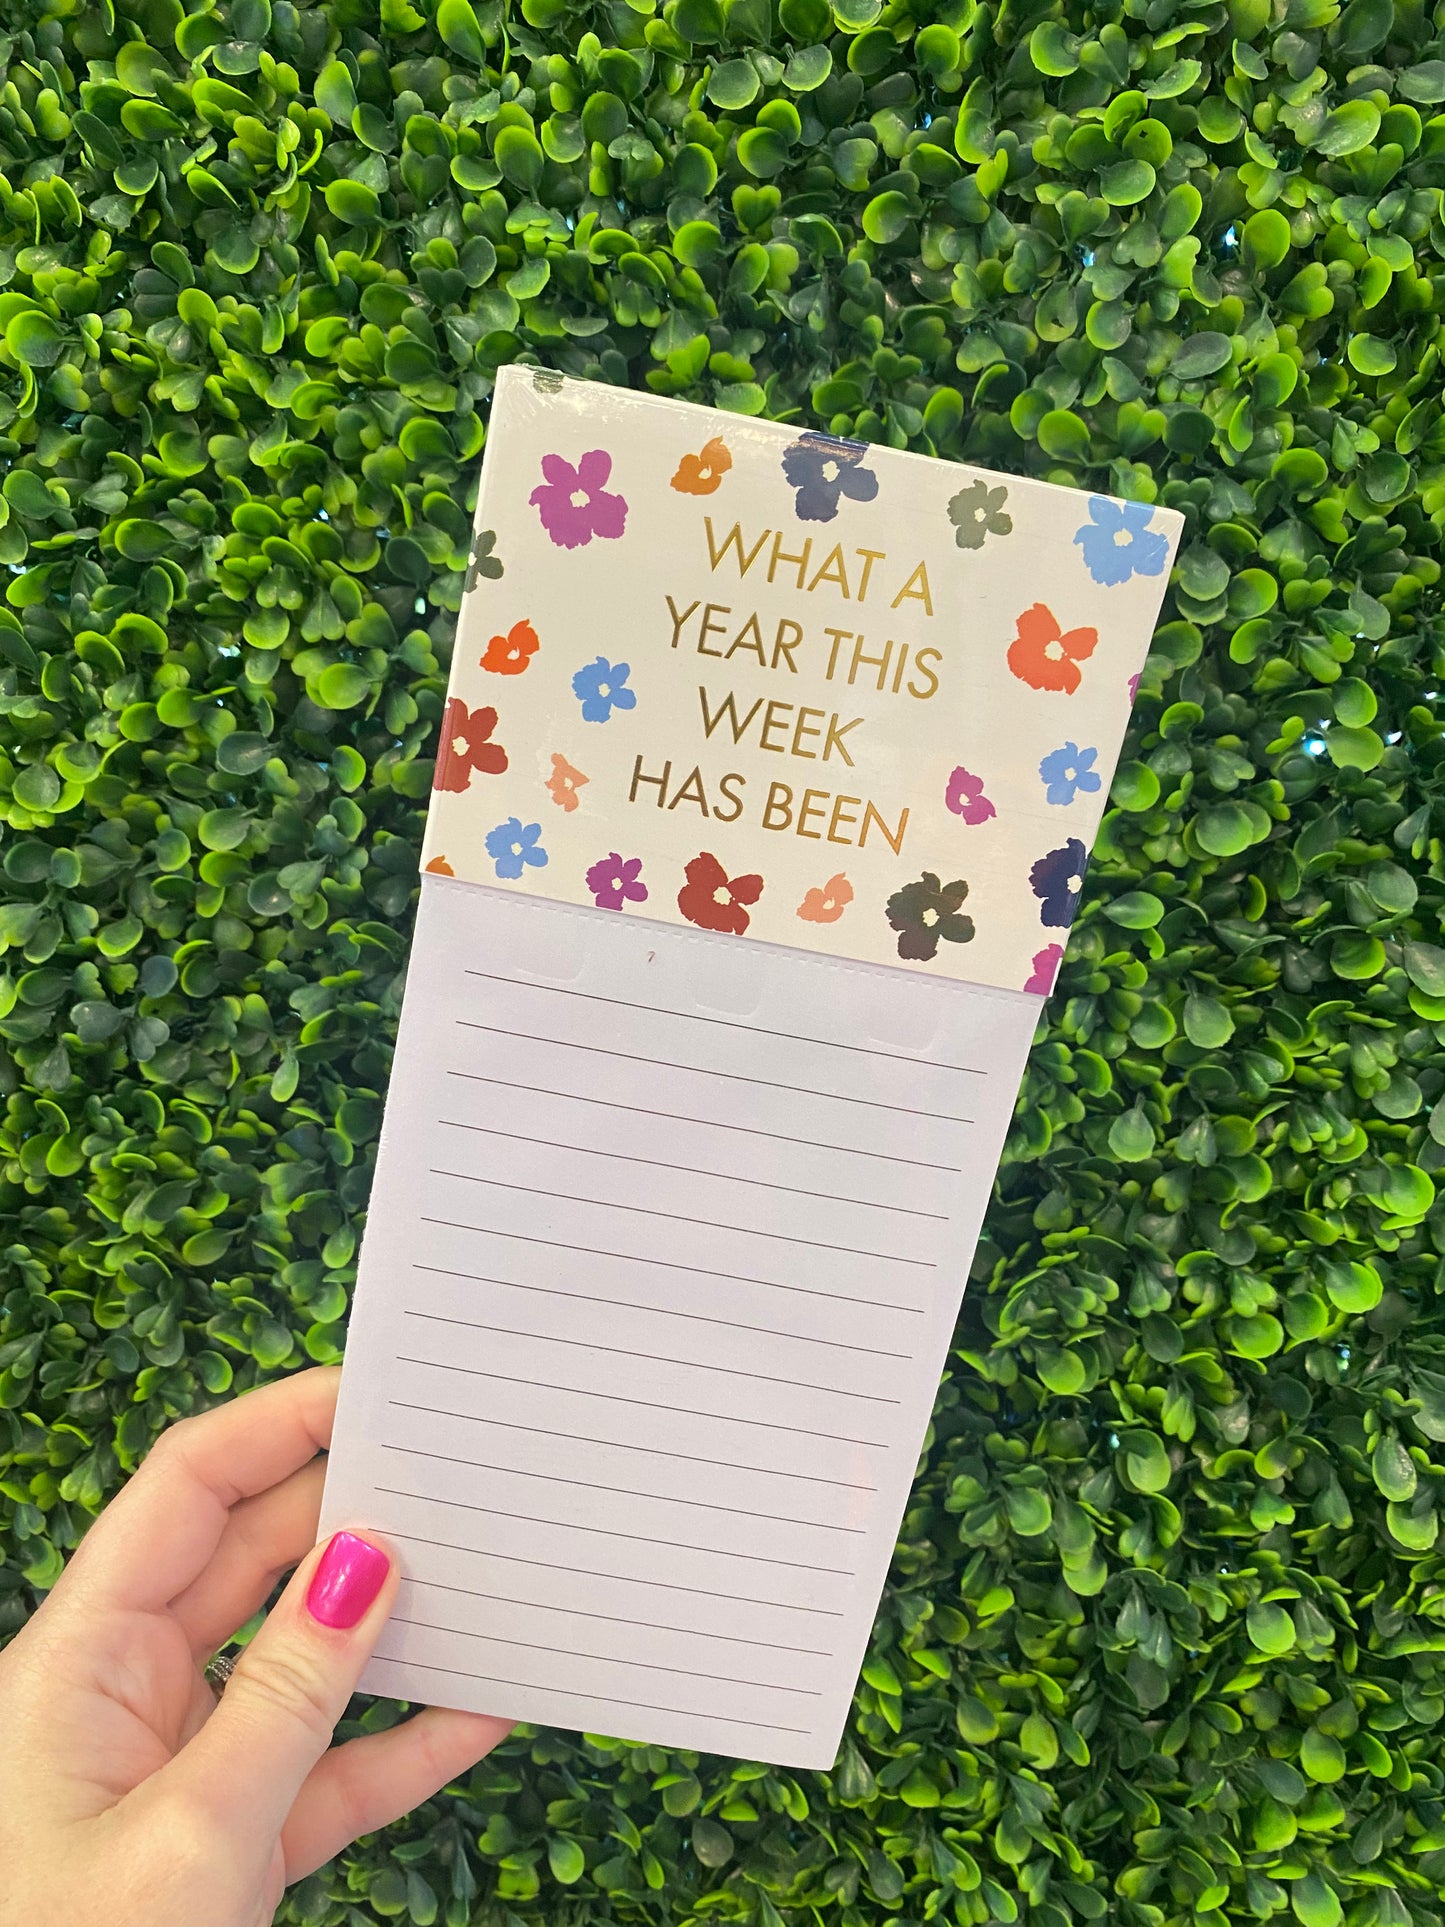 WHAT A
YEAR THIS
WEEK
HAS BEEN